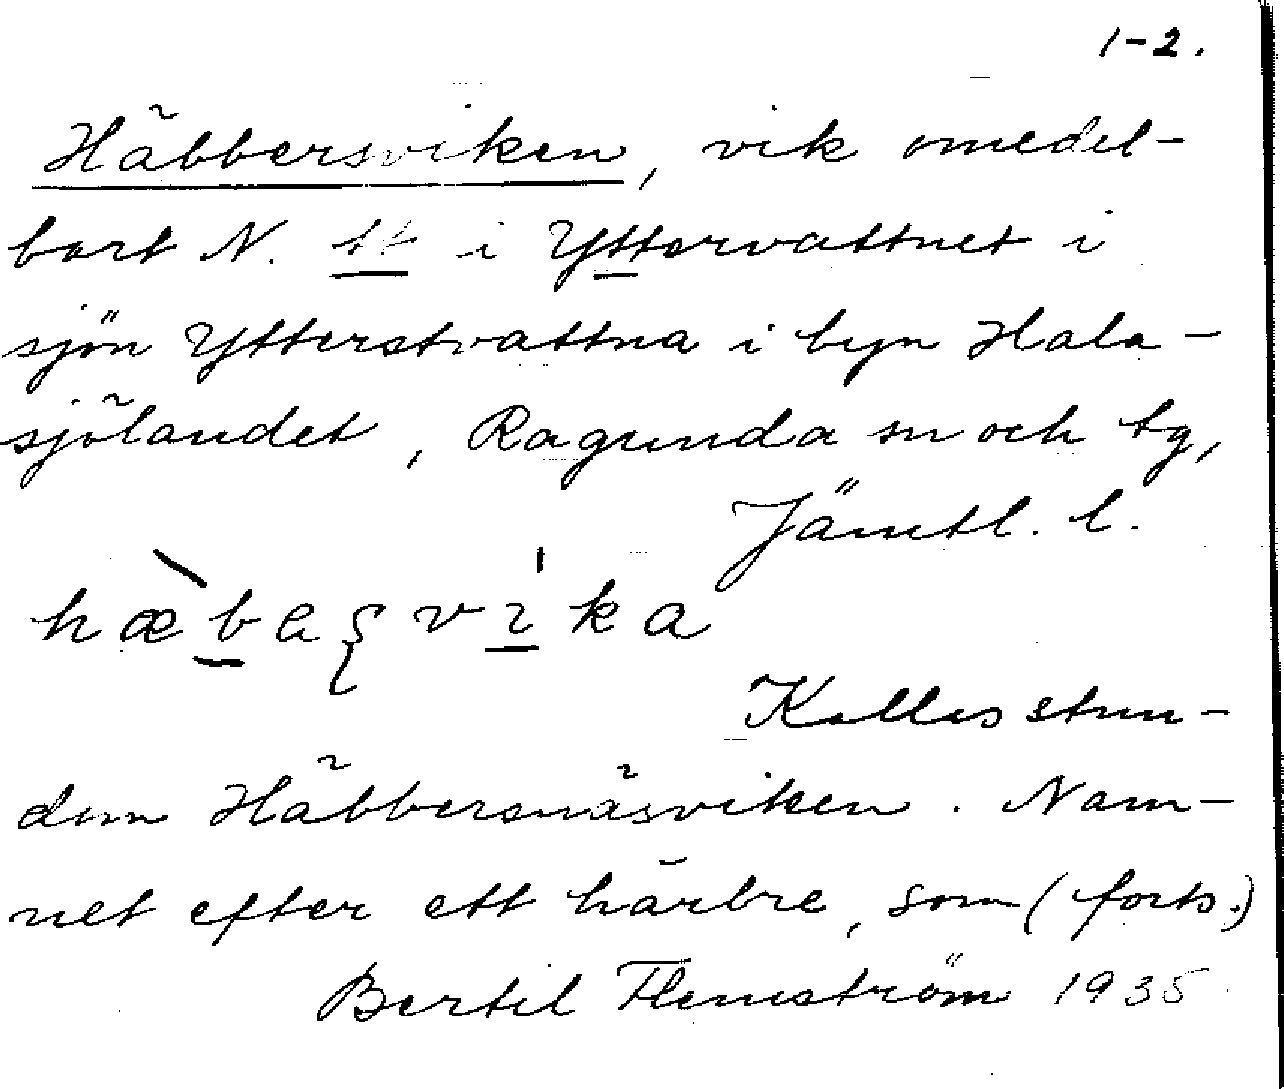 1-2.
Häbbersviken, vik omedel-
bart N. tt i Yttervattnet i
sjön Ytterstvattna i byn Hala-
sjölandet, Ragunda sn och tg,
Jämtl. l.
Kallas stun-
dom Häbbersnäsviken. Nam-
net efter ett härbre, som (forts.)
Bertil Flemström 1935